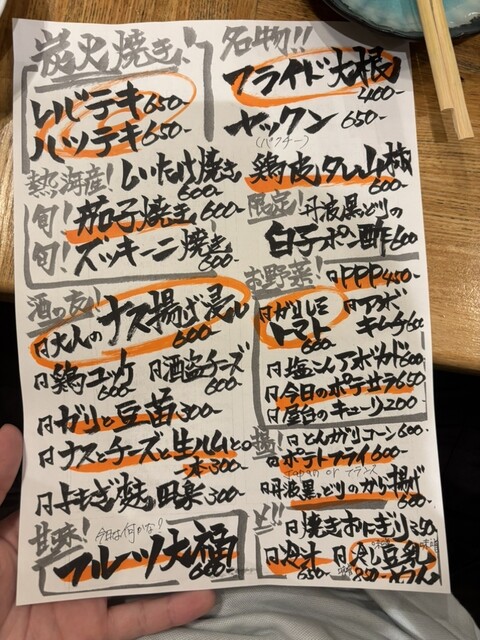 炭火焼き!
レバテキ 650-
ハツテキ 650-
熱海産!しいたけ焼き
600-
旬!茄子焼き 600-
旬!ズッキーニ焼き
600-
酒の友!
大人のナス揚げ浸し
600-
鶏ユッケ
600-
酒盗チーズ
600-
ガリと豆苗 300-
ナスとチーズと生ハムと
一本300-
よもぎ麩の田楽 300-
甘味!
今日は何かな?
フルーツ大福!
600-
名物!!
フライド大根
400-
ヤックン 650-
(パクチー)
鶏皮タレ山椒
600-
限定!丹波黒どりの
白子ポン酢 600
お野菜!
PPP 450-
ガリしそ
トマト
600-
アボ
キムチ 600
塩こんアボカド 600
今日のポテサラ 650
屋台のキューリ 200-
揚!
とんがりコーン 600-
ポテトフライ 600-
丹波黒どりのから揚げ
600-
〆!!
焼きおにぎり
冷汁
650-
豆乳
850-